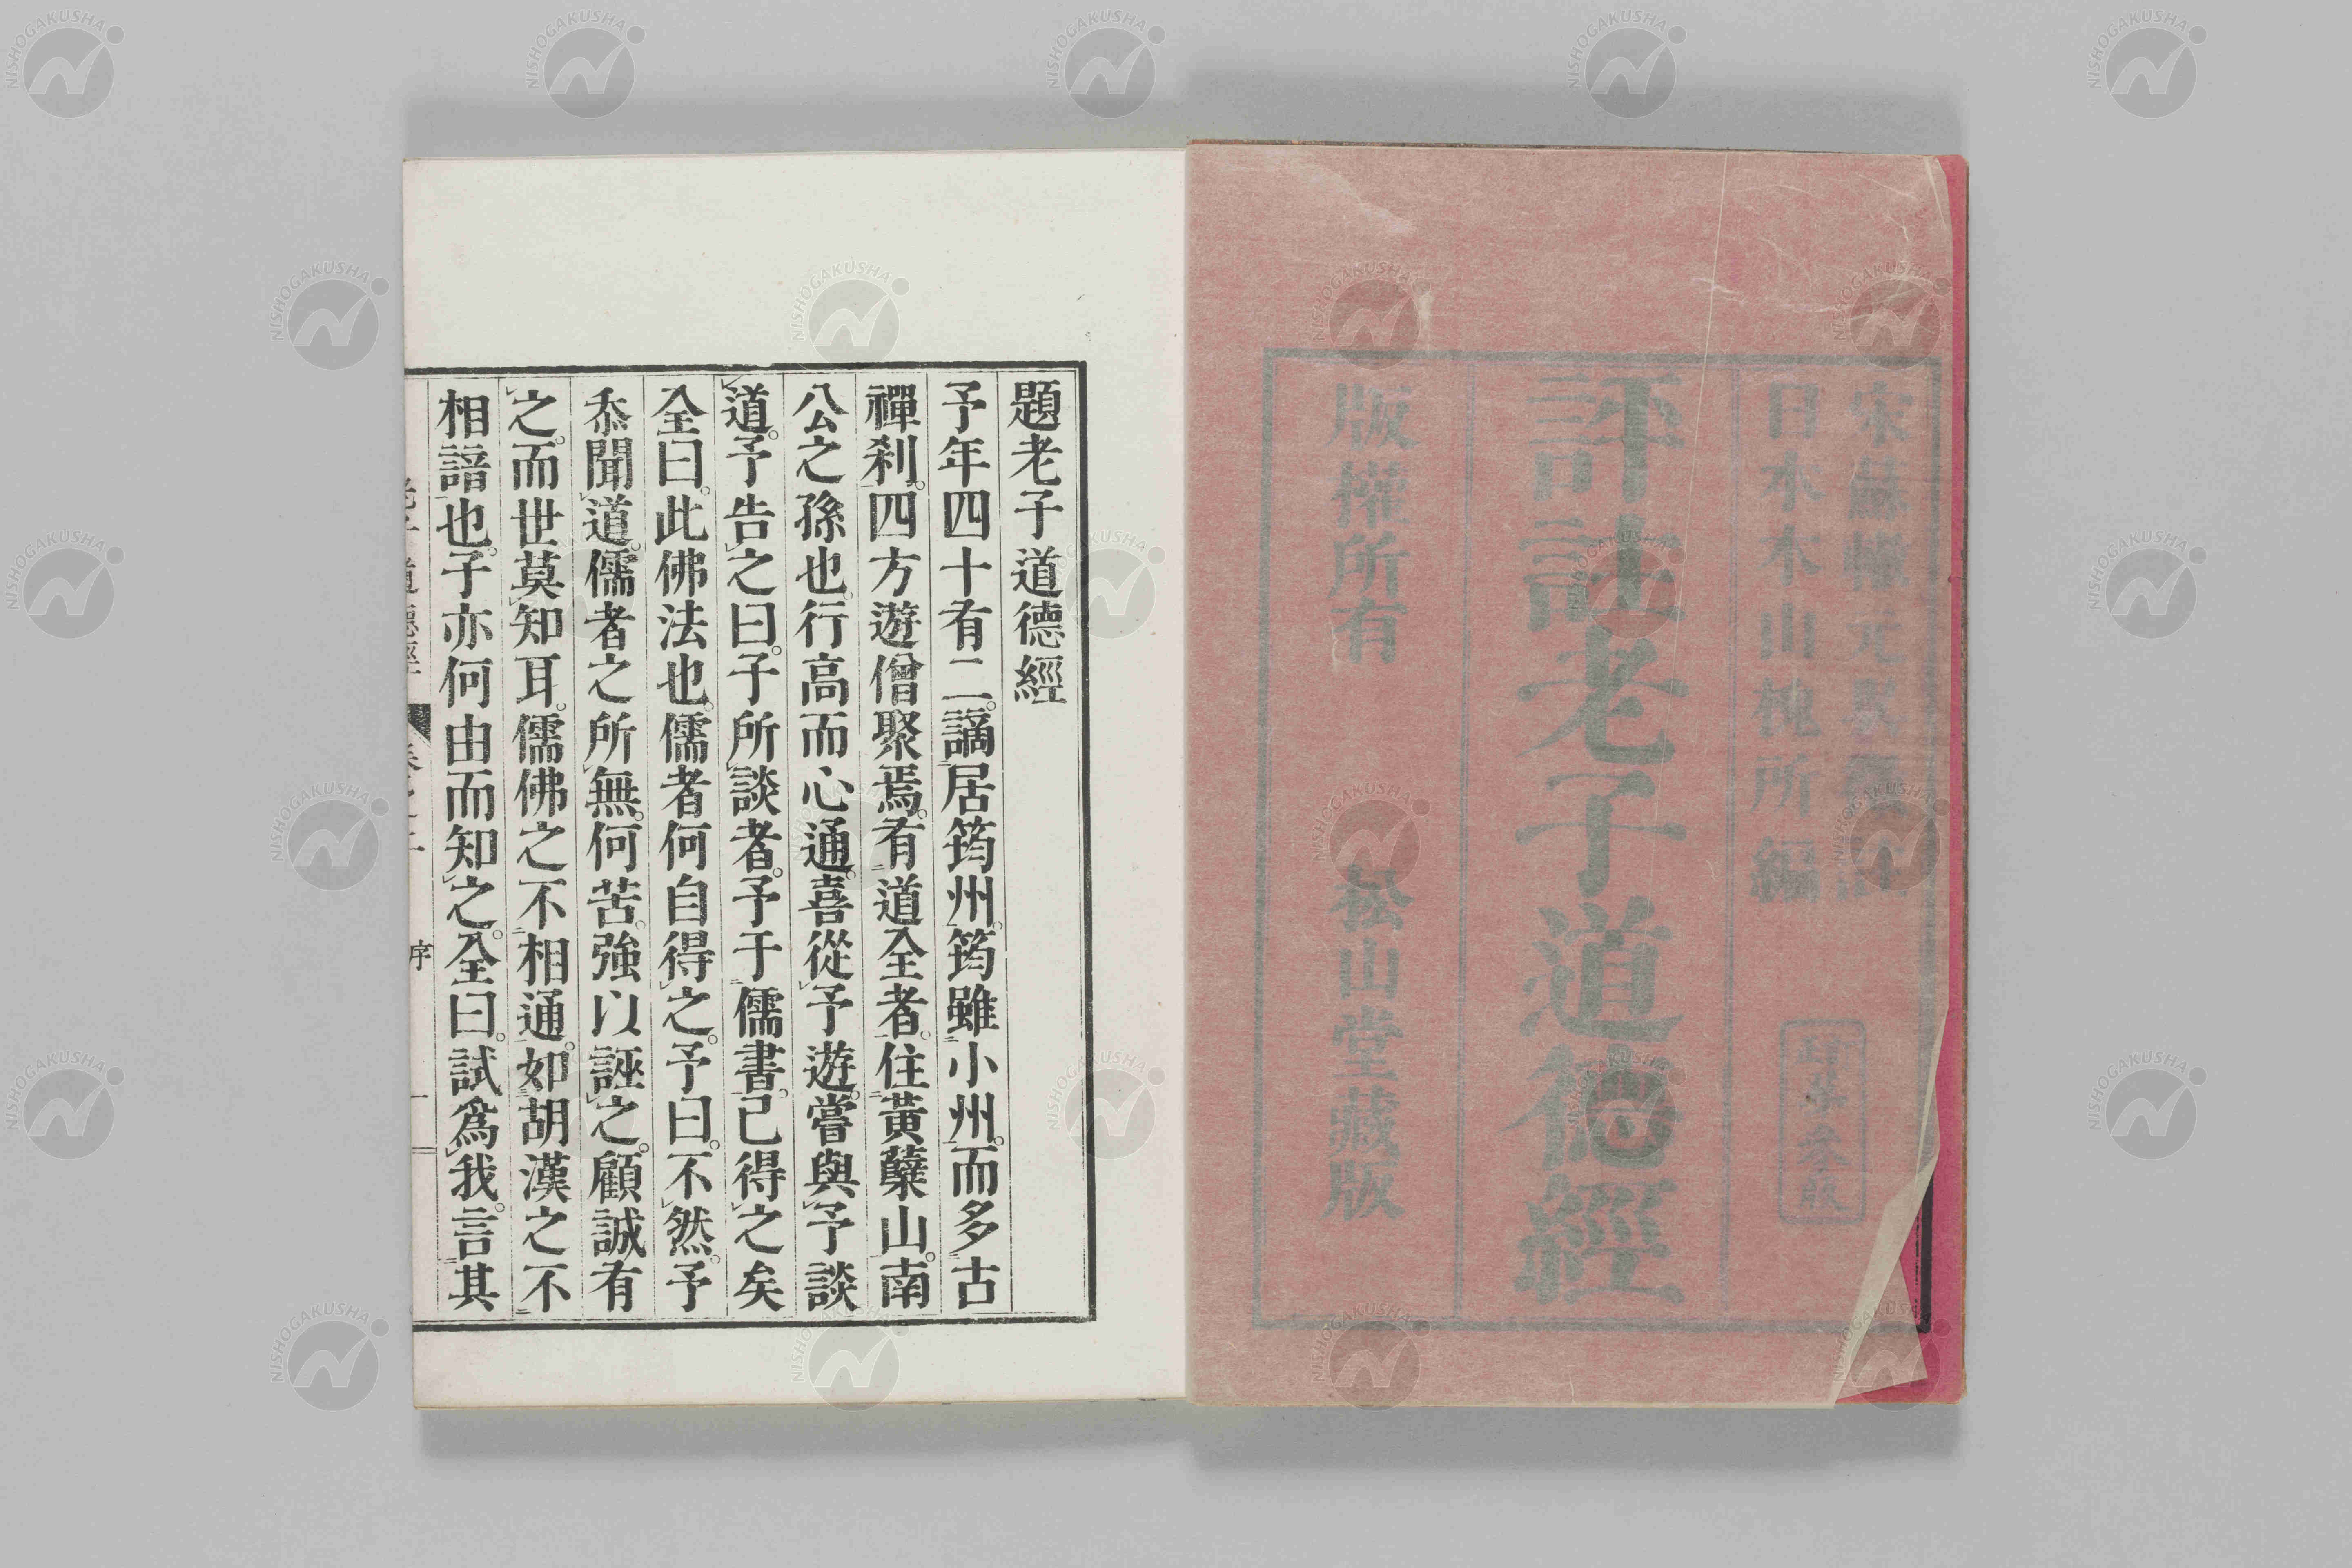 宋蘇轍元求註
日本木山槐所編
評註老子道德經
版權所有　松山堂藏版
題老子道德經
予年四十有二。謫居筠州。筠雖小州。而多古
禪刹。四方遊僧聚焉。有道全者。住黃蘗山。南
公之孫也。行高而心通。喜從予遊。嘗與予談
道。予告之曰。子所談者。予于儒書。已得之矣
全曰。此佛法也。儒者何自得之。予曰。不然。予
忝聞道。儒者之所無。何苦。強以誣之。顧誠有
之。而世莫知耳。儒佛之不相通。如胡漢之不
相諳也。子亦何由而知之。全曰。試爲我言其
序
一
NISHOGAKUSHA